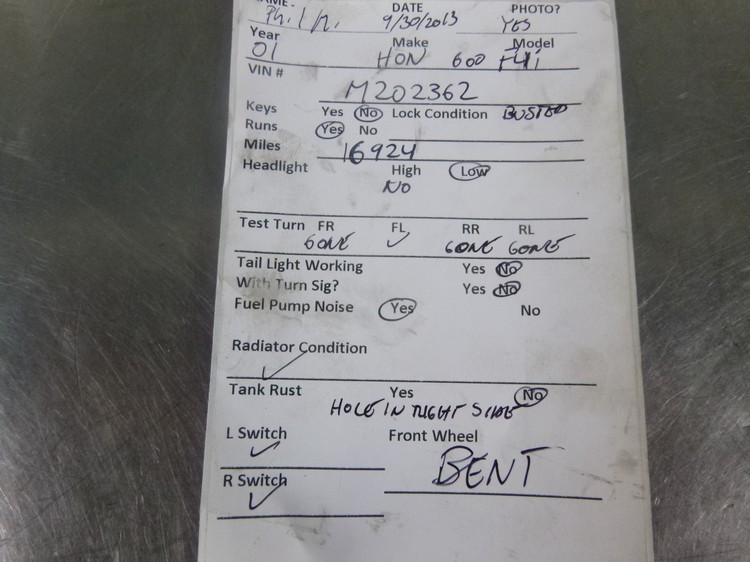 NAME - DATE PHOTO?
9/30/2013 YES
Year Make Model
01 HON 600 F4i
VIN #
M202362
Keys Yes No Lock Condition BUSTED
Runs Yes No
Miles 16924
Headlight High Low
NO
Test Turn FR FL RR RL
GONE ✓ GONE GONE
Tail Light Working Yes No
With Turn Sig? Yes No
Fuel Pump Noise Yes No
Radiator Condition
✓
Tank Rust Yes No
HOLE IN RIGHT SIDE
L Switch Front Wheel
✓ BENT
R Switch
✓